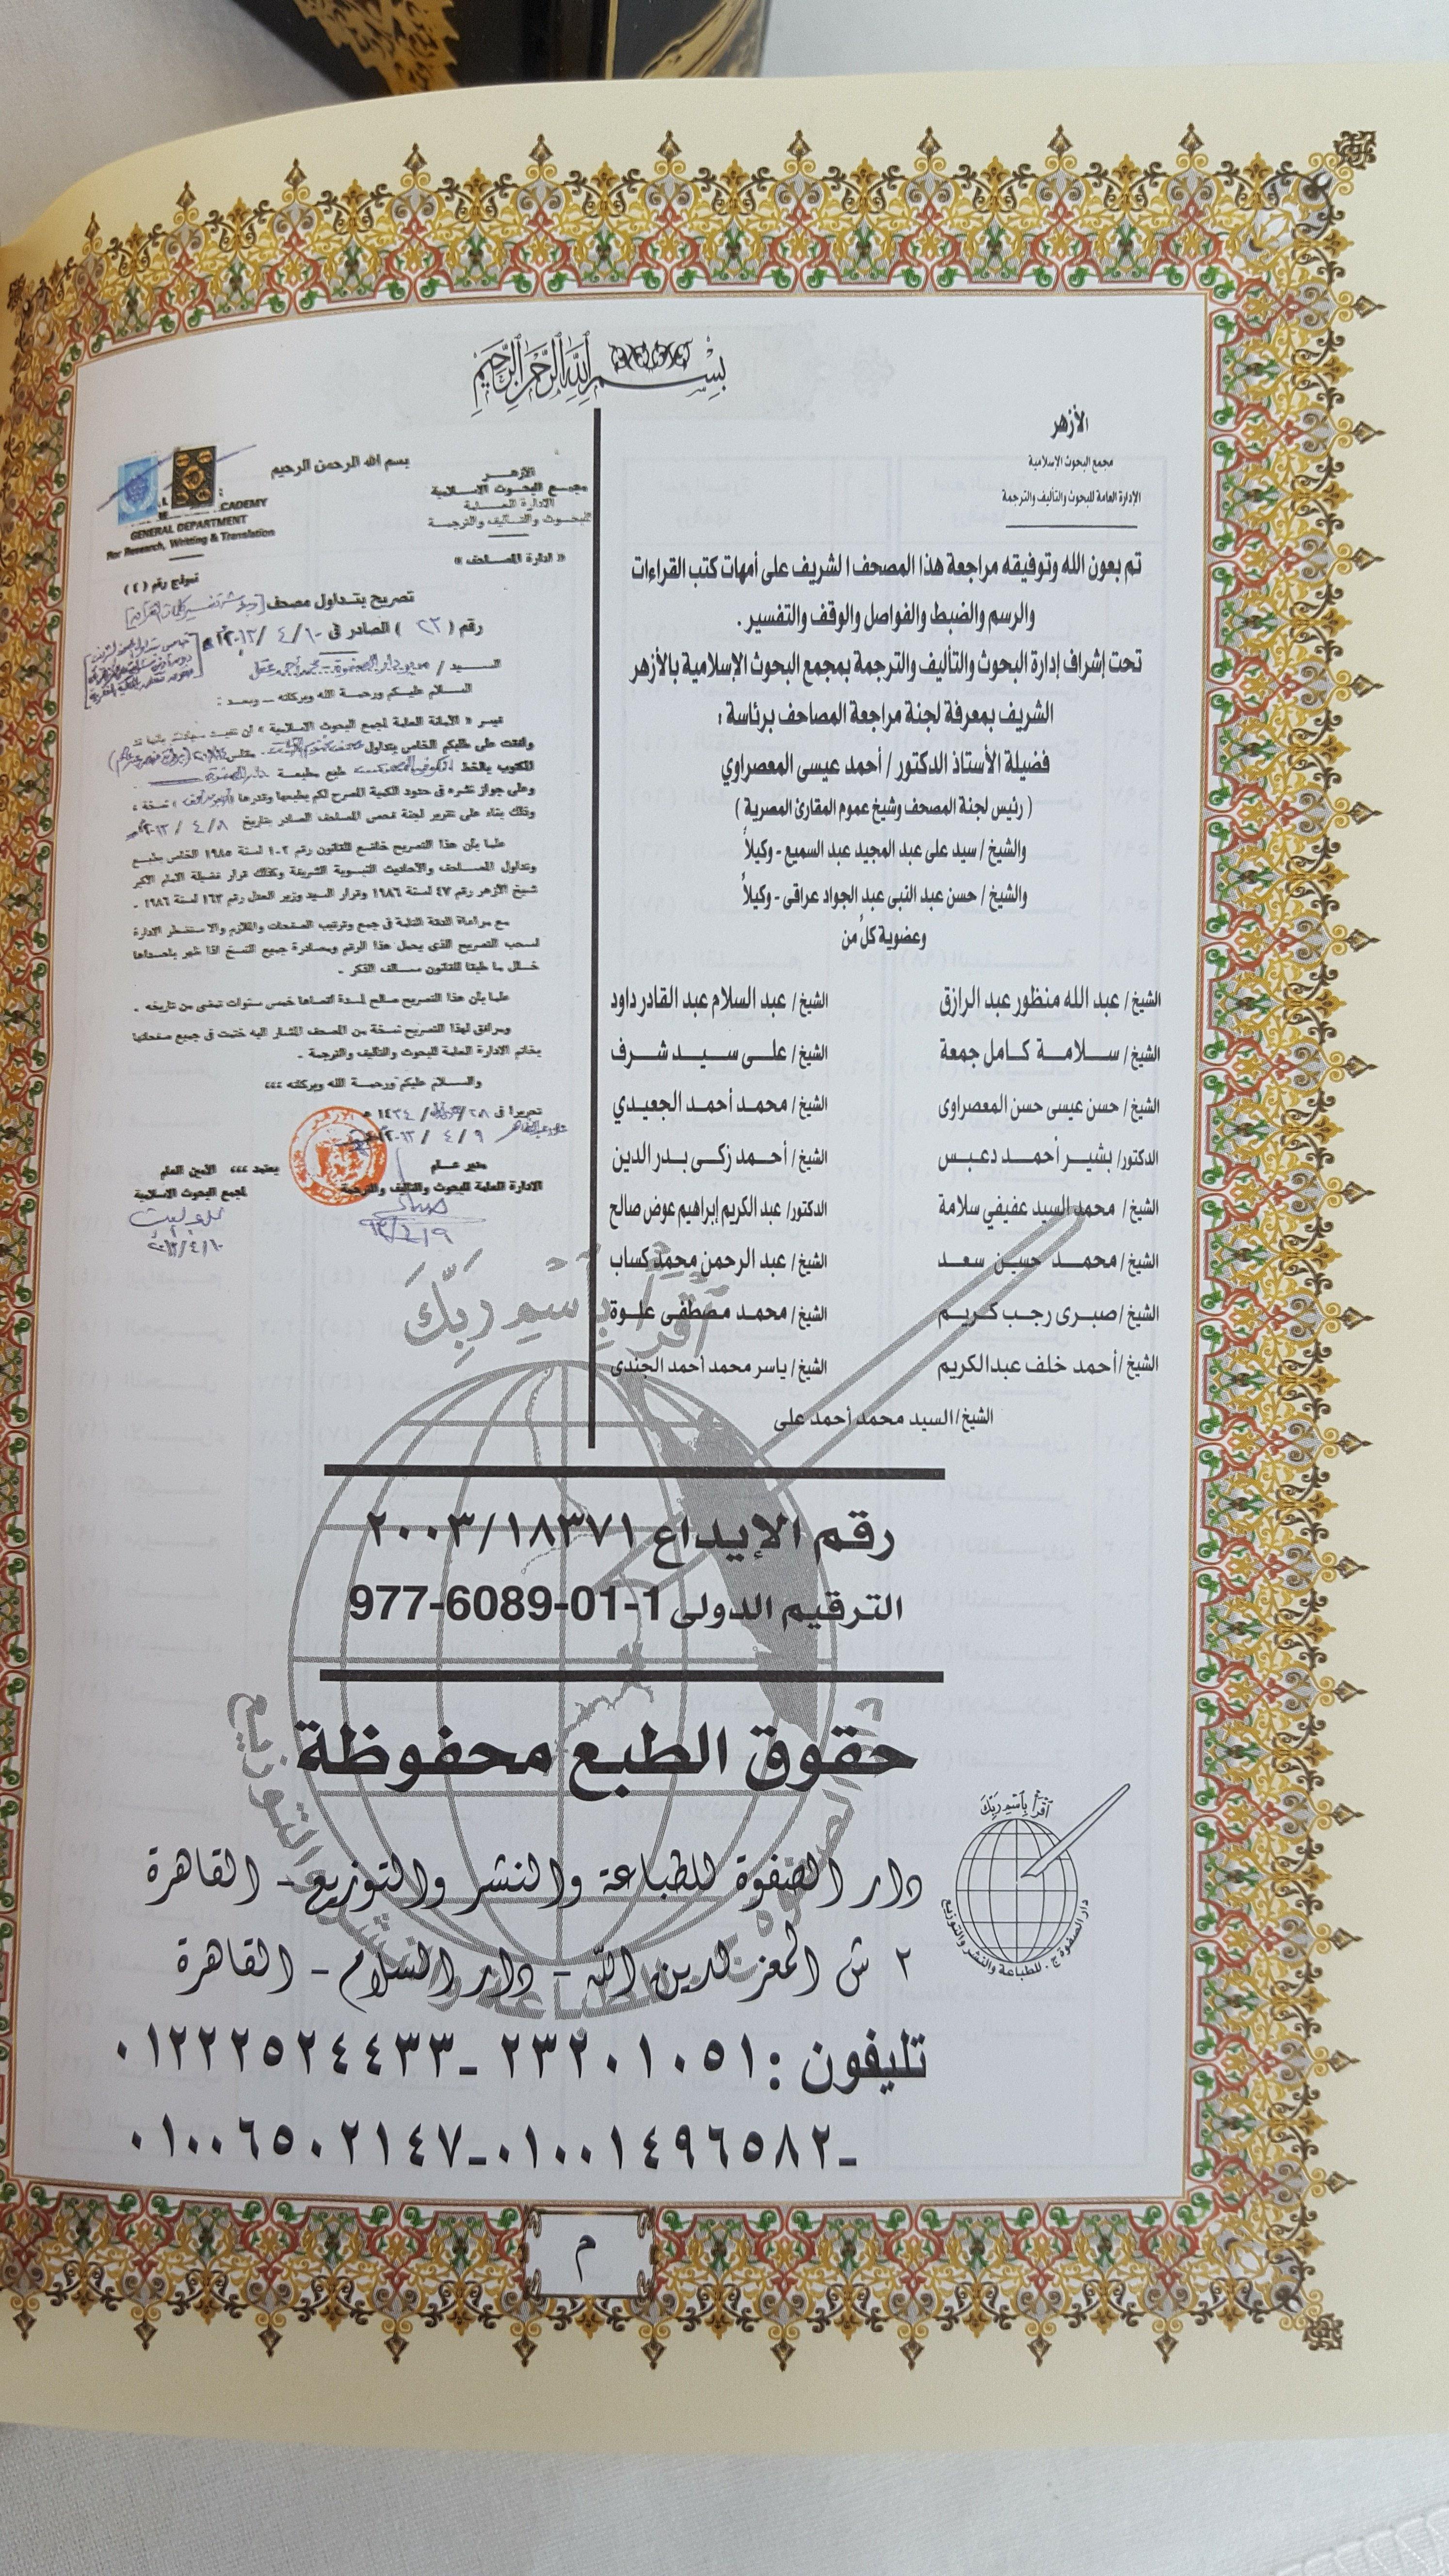 بسم الله الرحمن الرحيم
الأزهر
مجمع البحوث الإسلامية
الإدارة العامة للبحوث والتأليف والترجمة
تم بعون الله وتوفيقه مراجعة هذا المصحف الشريف على أمهات كتب القراءات
والرسم والضبط والفواصل والوقف والتفسير .
تحت إشراف إدارة البحوث والتأليف والترجمة بمجمع البحوث الإسلامية بالأزهر
الشريف بمعرفة لجنة مراجعة المصاحف برئاسة :
فضيلة الأستاذ الدكتور / أحمد عيسى المعصراوي
( رئيس لجنة المصحف وشيخ عموم المقارئ المصرية )
والشيخ / سيد على عبد المجيد عبد السميع - وكيلاً
والشيخ / حسن عبد النبى عبد الجواد عراقى - وكيلاً
وعضوية كلٌ من
الشيخ/ عبد الله منظور عبد الرازق الشيخ/ عبد السلام عبد القادر داود
الشيخ/ ســلامــة كـامـل جمعة الشيخ/ علــى ســيــد شــرف
الشيخ/ حسن عيسى حسن المعصراوى الشيخ/ محمـد أحمـد الجعيـدي
الدكتور/ بشيـر أحمـد دعبـس الشيخ/ أحــمـد زكـى بـدر الدين
الشيخ/ محمد السيد عفيفي سلامة الدكتور/ عبد الكريم إبراهيم عوض صالح
الشيخ/ محمـــد حسين سعـــد الشيخ/ عبد الرحمن محمد كساب
الشيخ/ صبـرى رجـب كـريـم الشيخ/ محمـد مصطفى علـوة
الشيخ/ أحمد خلف عبدالكريم الشيخ/ ياسر محمد أحمد الجندى
الشيخ/ السيد محمد أحمد على
بسم الله الرحمن الرحيم
الأزهــر
مجمـع البحـوث الاسـلامية
الإدارة العـامـة
للبحـوث والتـأليف والترجمـة
CADEMY
GENERAL DEPARTMENT
For Research, Writting & Translation
« ادارة المصـاحف »
نموذج رقم (٤)
تصريح بتـداول مصحف
رقم ( ٢٣ ) الصادر فى ١٠/ ٤ /٢٠١٣م
السـيد / مدير دار الصفوة - محمد أحمد عقل
السـلام عليكم ورحمة الله وبركاته – وبعـد :
وعلى جواز نشره فى حدود الكمية المصرح لكم بطبعها وقدرها نسخة ،
وذلك بناء على تقرير لجنة فحص المصاحف الصادر بتاريخ ٨ / ٤ / ٢٠١٣م
علمـا بأن هذا التصريح خاضـع للقانون رقم ١٠٢ لسنة ١٩٨٥ الخاص بطبـع
وتداول المصـاحف والأحاديث النبـوية الشريفة وكذلك قرار فضيلة الامام الأكبر
شـيخ الأزهر رقم ٤٧ لسنة ١٩٨٦ وقرار السيد وزير العدل رقم ١٦٣ لسنة ١٩٨٦ .
مع مراعاة الدقة التامة فى جمع وترتيب الصفحات والملازم والا ستضطر الادارة
لسحب التصريح الذى يحمل هذا الرقم ومصادرة جميع النسخ اذا ظهر باحداها
خـلل ما طبقا للقانون سـالف الذكر .
علمـا بأن هذا التصريح صالح لمـدة أقصـاها خمس سنوات تمضى من تاريخه .
ومرافق لهذا التصريح نسخة من المصحف المشار اليه ختمت فى جميع صفحاتها
بخاتم الادارة العامـة للبحوث والتأليف والترجمة .
والسـلام عليكم ورحمة الله وبركاته ،،،
تحريرا فى ٢٨/ /١٤٣٤ هـ
٩ / ٤ / ٢٠١٣
مدير عـام
الادارة العامة للبحوث والتأليف والترجمة
يعتمد ،،، الأمين العام
لمجمع البحوث الاسلامية
٢٠١٣/٤/١٠
اقرأ باسم ربك
رقم الإيداع ٢٠٠٣/١٨٣٧١
الترقيم الدولى 977-6089-01-1
حقوق الطبع محفوظة
دار الصفوة للطباعة والنشر والتوزيع - القاهرة
٢ ش المعز لدين الله - دار السلام - القاهرة
تليفون : ٢٣٢٠١٠٥١ - ٠١٢٢٢٥٢٤٤٣٣
-٠١٠٠١٤٩٦٥٨٢-٠١٠٠٦٥٠٢١٤٧
اقرأ باسم ربك
دار الصفوة ج.م للطباعة والنشر والتوزيع
م